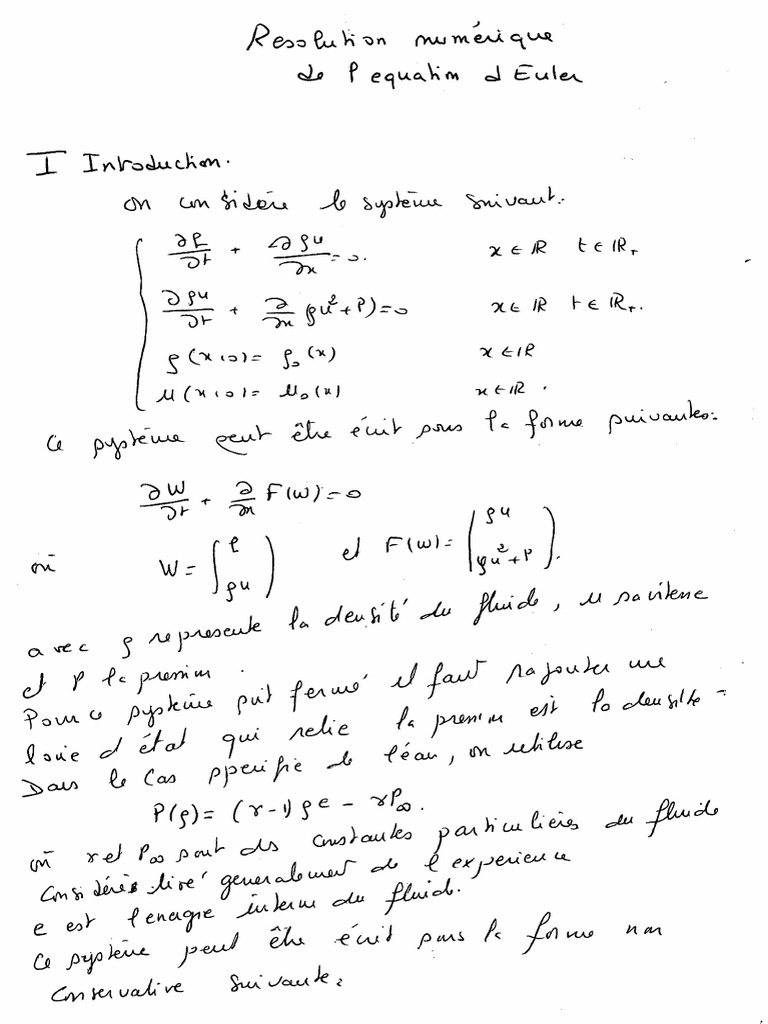 Resolution numérique
de l equation d Euler
I Introduction.
on considère le système suivant:
∂ρ/∂t + ∂ρu/∂x = 0. x ∈ IR t ∈ IR+
∂ρu/∂t + ∂/∂x (ρu² + P) = 0 x ∈ IR t ∈ IR+.
ρ(x,0) = ρ₀(x) x ∈ IR
u(x,0) = u₀(x) x ∈ IR.
Ce système peut être écrit sous la forme suivantes:
∂W/∂t + ∂/∂x F(W) = 0
où W = (ρ ρu) et F(W) = (ρu ρu² + P).
avec ρ represente la densité du fluide, u sa vitesse
et P la pression.
Pour ce système soit fermé il faut rajouter une
loi d état qui relie la pression est la densité.
Dans le Cas spécifie de l'éau, on utilise
P(ρ) = (γ-1)ρe - γP∞.
où γ et P∞ sont des constantes particulières du fluide
Considérés tiré généralement de l experience
e est l'energie interne du fluid.
Ce système peut être écrit sous la forme non
conservative suivante: